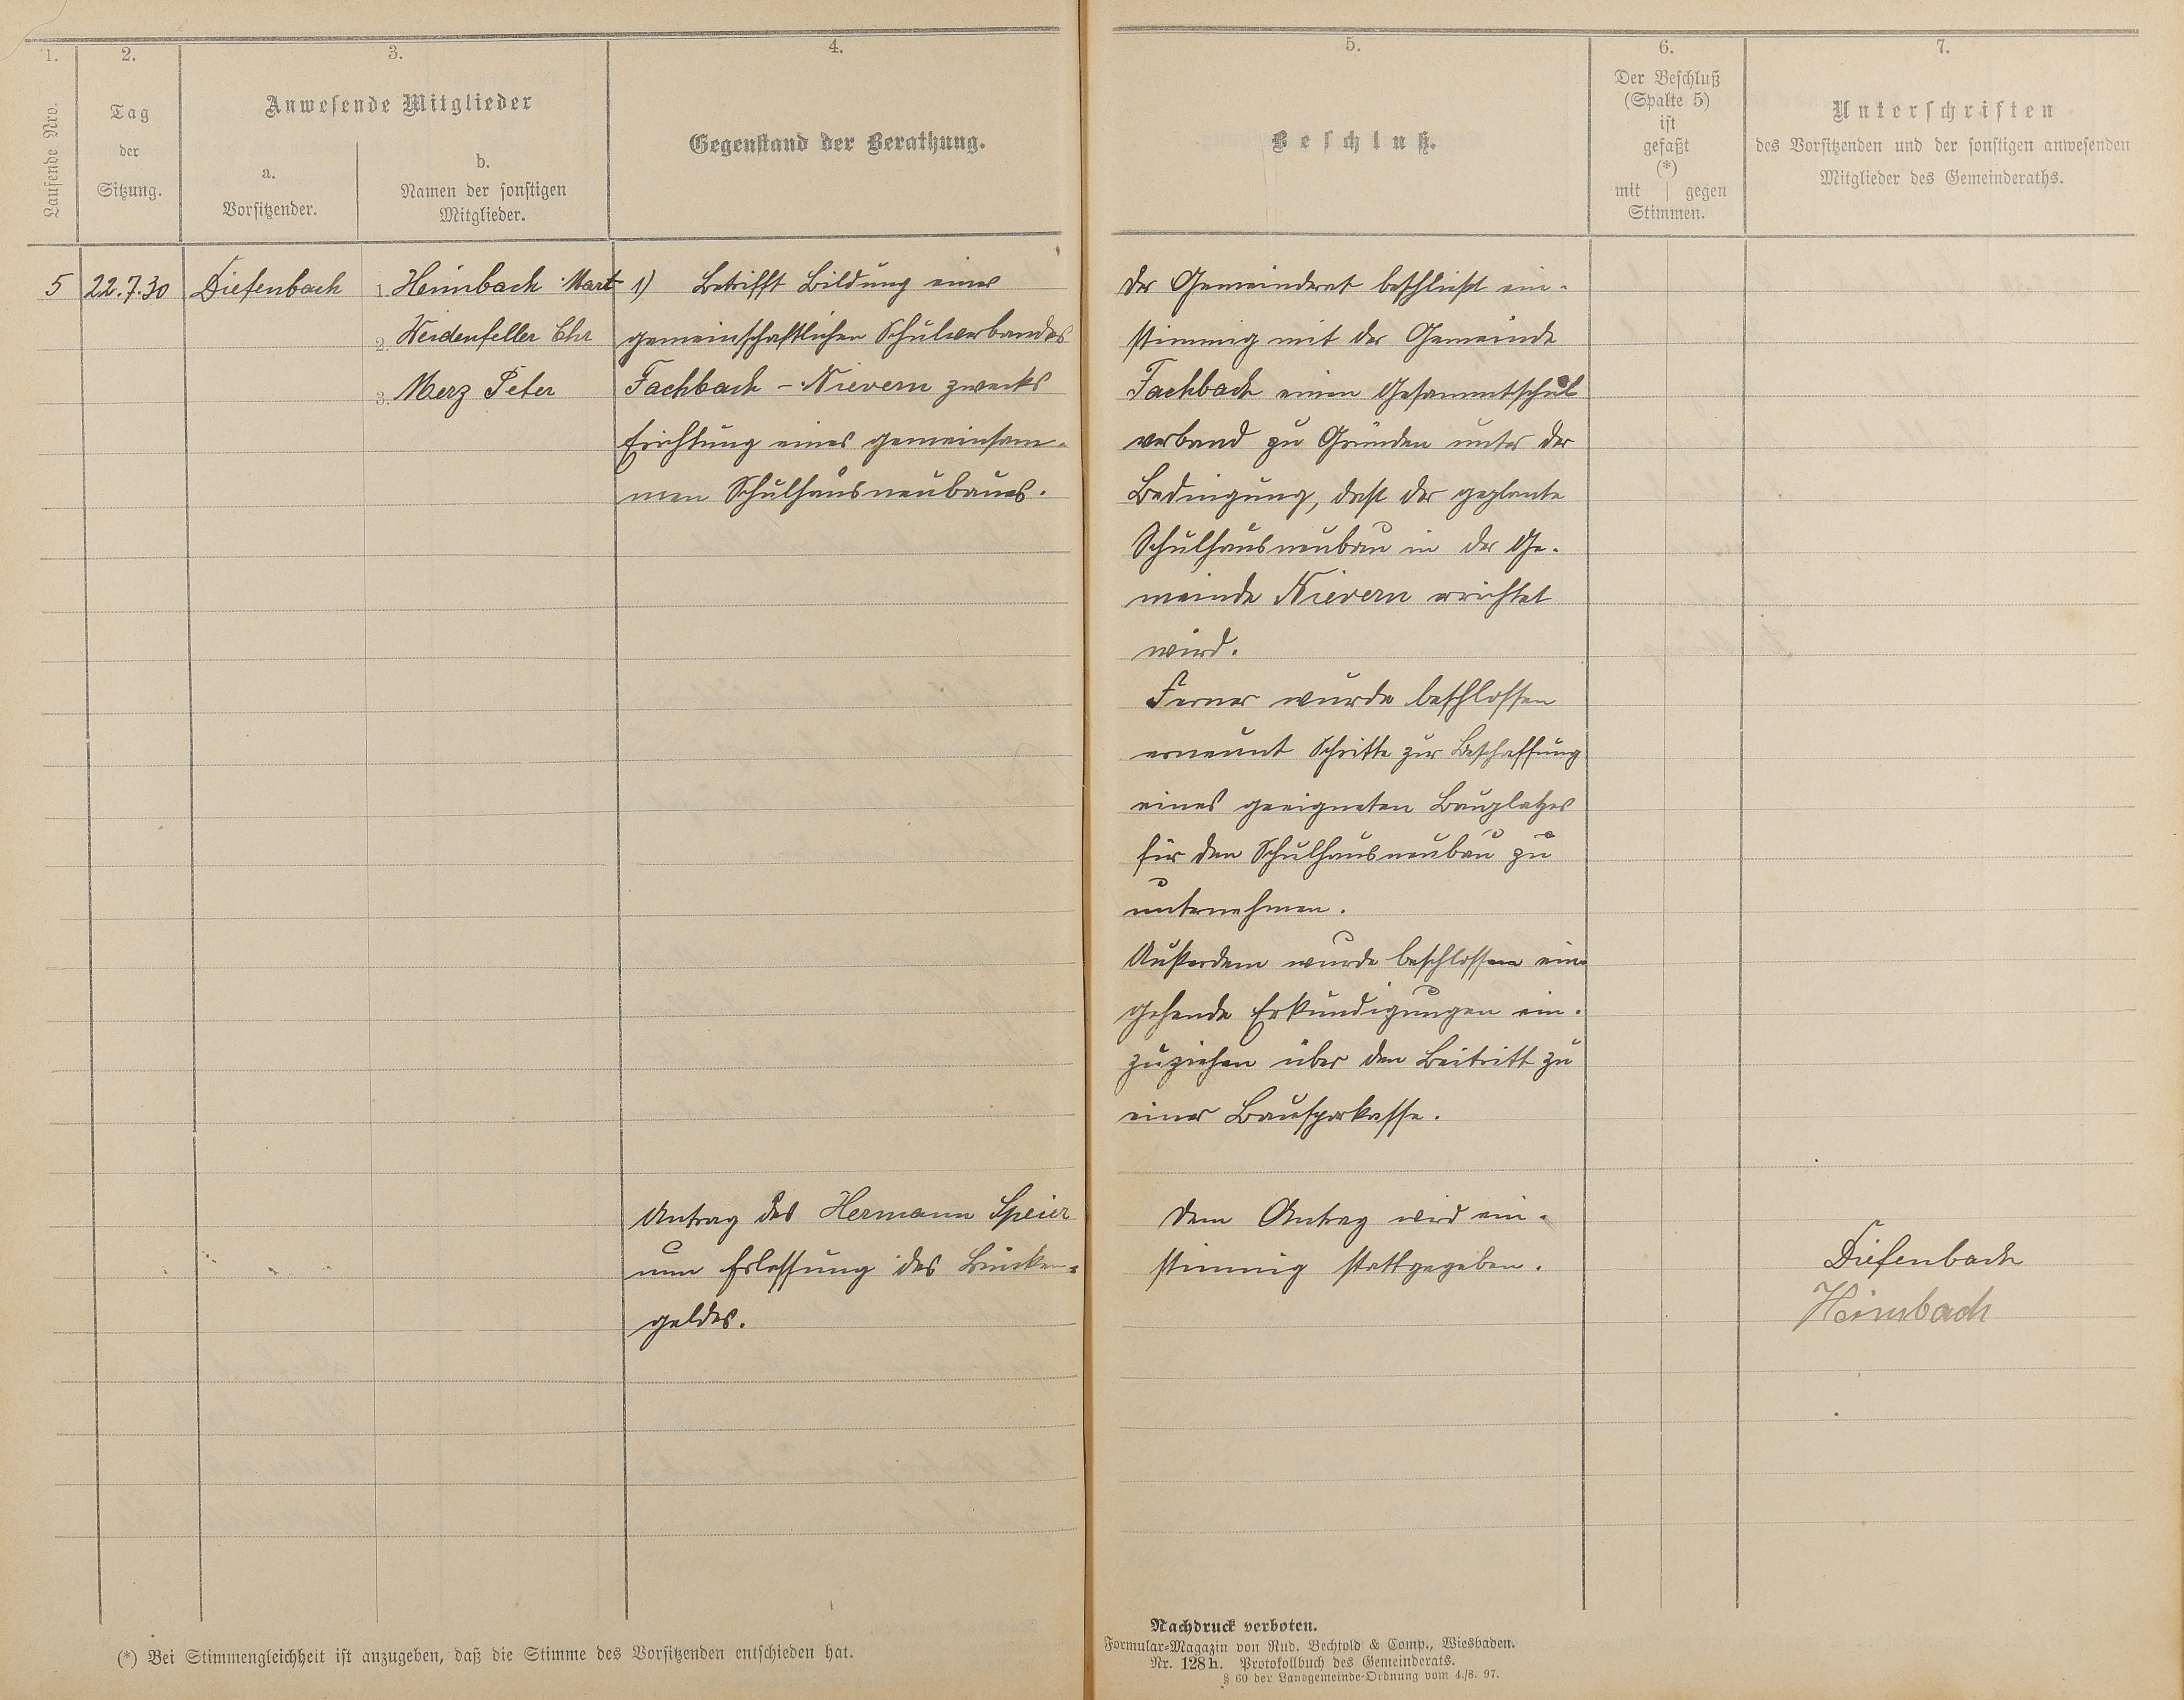 1.
Laufende Nro.
2.
Tag
der
Sitzung.
3.
Anwesende Mitglieder
a.
Vorsitzender.
b.
Namen der sonstigen
Mitglieder.
4.
Gegenstand der Berathung.
5
22.7.30
Diefenbach
1. Heimbach Mart
2. Weidenfeller Chr
3. Merz Peter
1) Betrifft Bildung eines
gemeinschaftlichen Schulverbandes
Fachbach – Nievern zwecks
Errichtung eines gemeinsam-
men Schulhausneubaues.
Antrag des Hermann Speier
um Erlassung des Brücken-
geldes.
(*) Bei Stimmengleichheit ist anzugeben, daß die Stimme des Vorsitzenden entschieden hat.
5.
Beschluß.
6.
Der Beschluß
(Spalte 5)
ist
gefaßt
(*)
mit | gegen
Stimmen.
7.
Unterschriften
des Vorsitzenden und der sonstigen anwesenden
Mitglieder des Gemeinderaths.
Der Gemeinderat beschließt ein-
stimmig mit der Gemeinde
Fachbach einen Gesammtschul
verband zu Gründen unter der
Bedingung, daß der geplante
Schulhausneubau in der Ge-
meinde Nievern errichtet
wird.
Ferner wurde beschlossen
erneunt Schritte zur Beschaffung
eines geeigneten Bauplatzes
für den Schulhausneubau zu
unternehmen.
Außerdem wurde beschlossen ein-
gehende Erkundigungen ein-
zuziehen über den Beitritt zu
einer Bausparkasse.
Dem Antrag wird ein-
stimmig stattgegeben.
Diefenbach
Heimbach
Nachdruck verboten.
Formular-Magazin von Rud. Bechtold & Comp., Wiesbaden.
Nr. 128h. Protokollbuch des Gemeinderats.
§ 60 der Landgemeinde-Ordnung vom 4./8. 97.